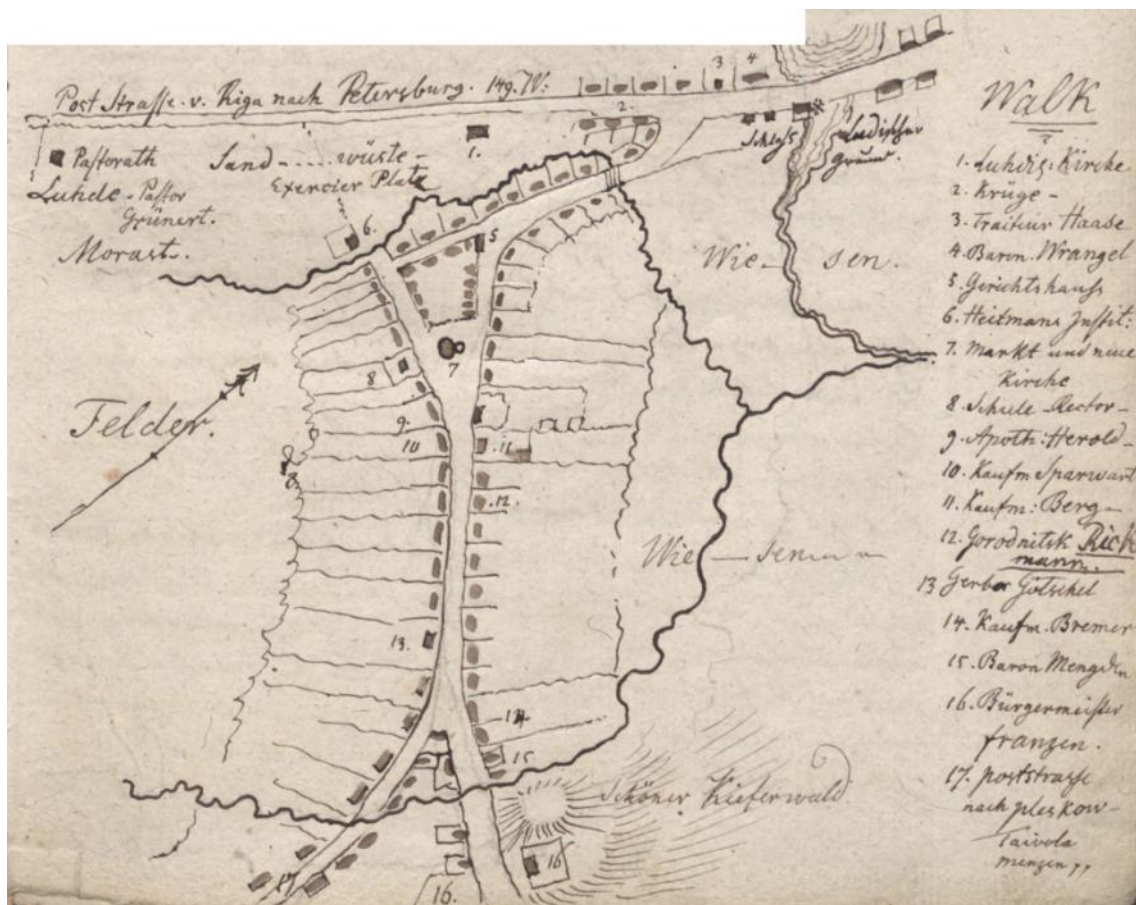 Post Strasse v. Riga nach Petersburg. 149. W:
Pastorath
Luhde - Pastor
Grünert.
Morast.
Sand - ..... wüste -
Exercier Platz
1.
2.
3
4
Schloss
Ludischer
Grund.
6.
5
Wie - sen.
7
8
9.
10
11
12.
Felder.
Wie - sen
13.
14
15
Schöner Kieferwald
16
16.
17
Walk
1. Luhdis: Kirche
2. Krüge -
3. Traiteur Haase
4. Baron. Wrangel
5. Gerichtshauss
6. Heitmans Instit:
7. Markt und neue
Kirche
8. Schule - Rector -
9. Apoth: Herold -
10. Kaufm Sparwart
11. Kaufm: Berg -
12. Gorodnitsk Rick
mann.
13 Gerber Götschel
14. Kaufm. Bremer
15. Baron Mengden
16. Bürgermeister
franzen.
17. poststrasse
nach pleskow -
Taivola
menzen